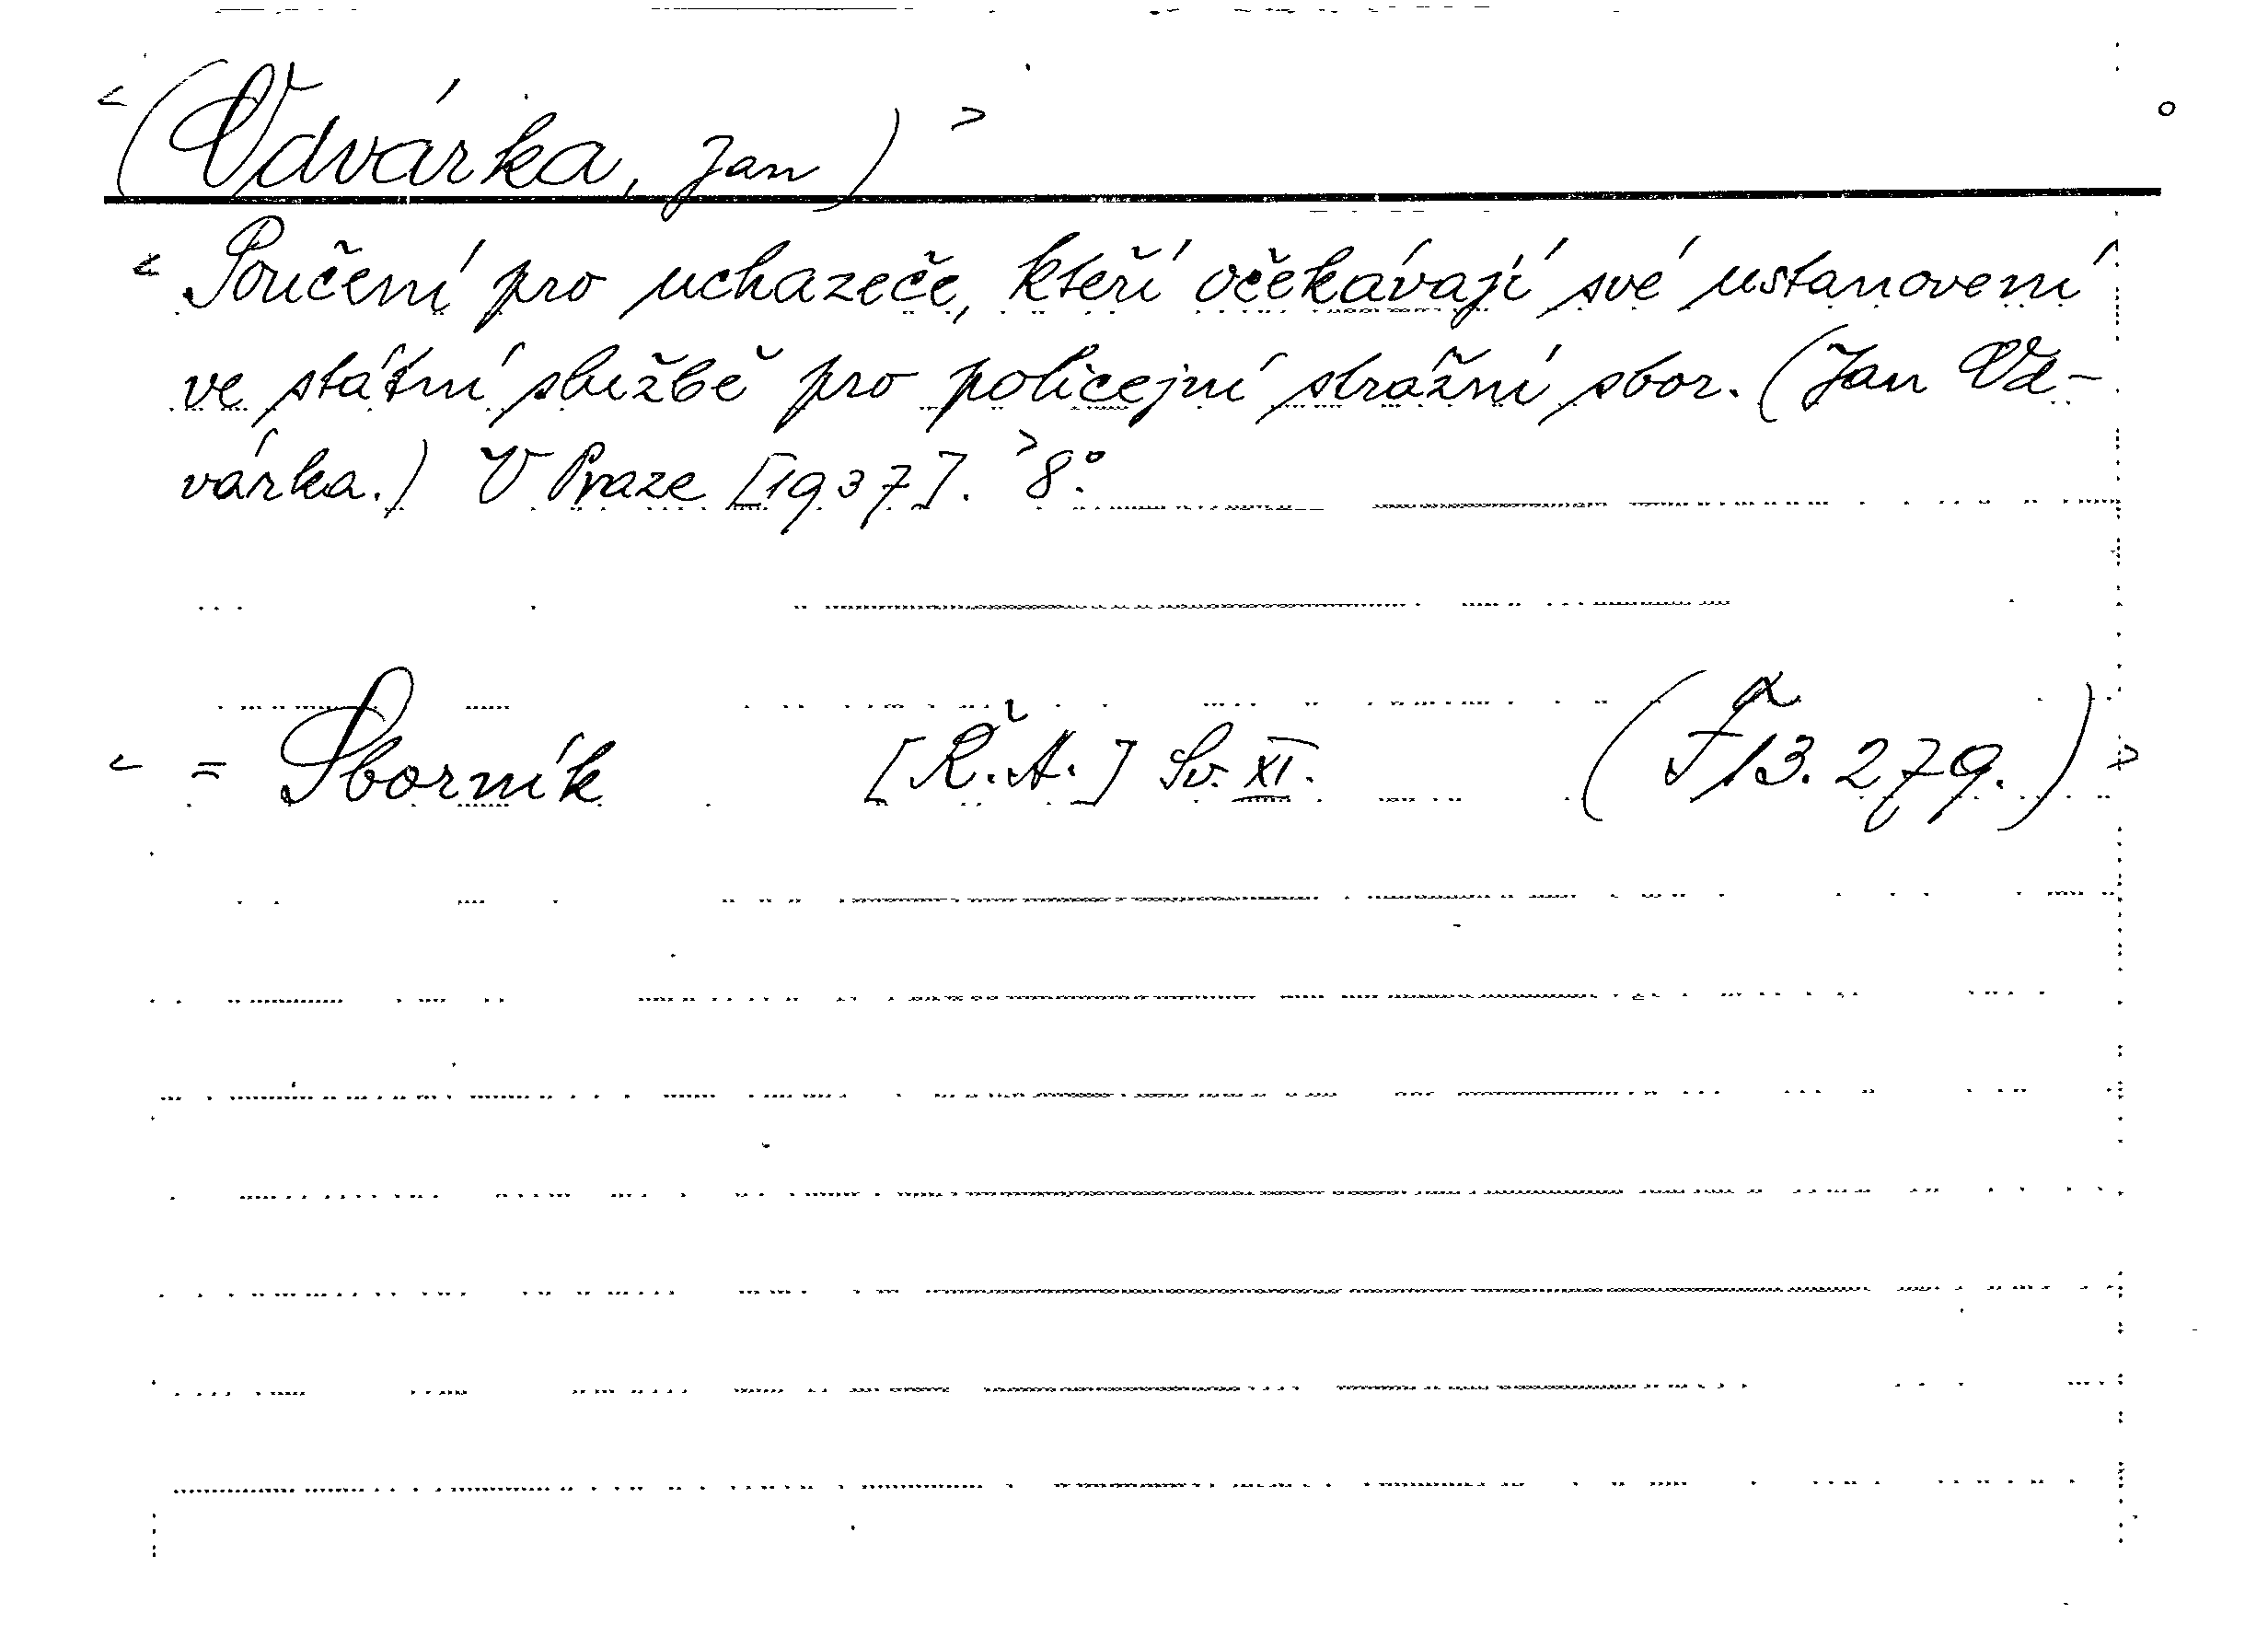 < (Odvárka, Jan) >
< Poučení pro uchazeče, kteří očekávají své ustanovení
ve státní službě pro policejní strážní sbor. (Jan Od-
várka.) V Praze [1937]. > 8°.
< = Sborník [Ř.A.] Sv. XI. (F 13.279.) >